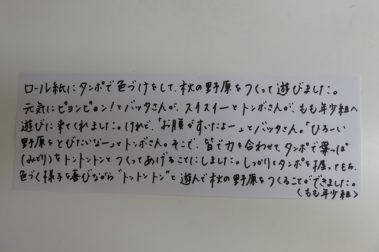 ロール紙にタンポで色づけをして、秋の野原をつくって遊びました。
元気にピョンピョン！とバッタさんが、スイスイーとトンボさんが、もも年少組へ
遊びに来てくれました。けれど、「お腹がすいたよー」とバッタさん。「ひろーい
野原をとびたいなー」とトンボさん。そこで、皆で力を合わせてタンポで葉っぱ
(みどり)をトントントンとつくってあげることにしました。しっかりとタンポを握ってもち、
色づく様子を喜びながら"トントントン"と遊んで秋の野原をつくることができました。
＜もも年少組＞